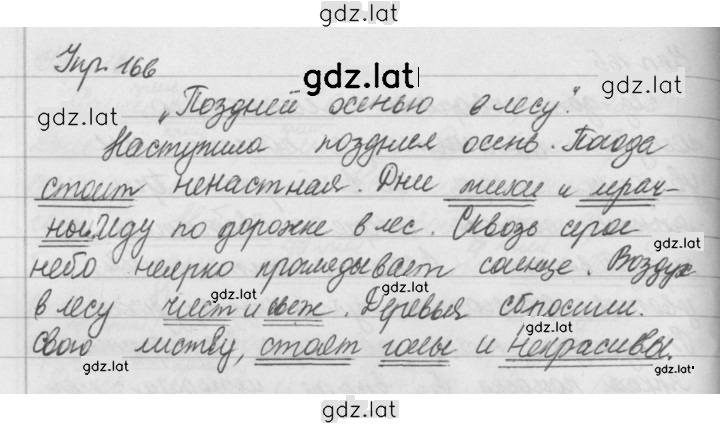 gdz.lat
Упр. 166
gdz.lat
„Поздней осенью в лесу".
gdz.lat
gdz.lat
Наступила поздняя осень. Погода
стоит ненастная. Дни тихие и мрач-
ны. Иду по дорожке в лес. Сквозь серое
gdz.lat
небо неярко проглядывает солнце. Воздух
gdz.lat
в лесу чист и свеж. Деревья сбросили
gdz.lat
свою листву, стоят голы и некрасивы.
gdz.lat
gdz.lat
gdz.lat